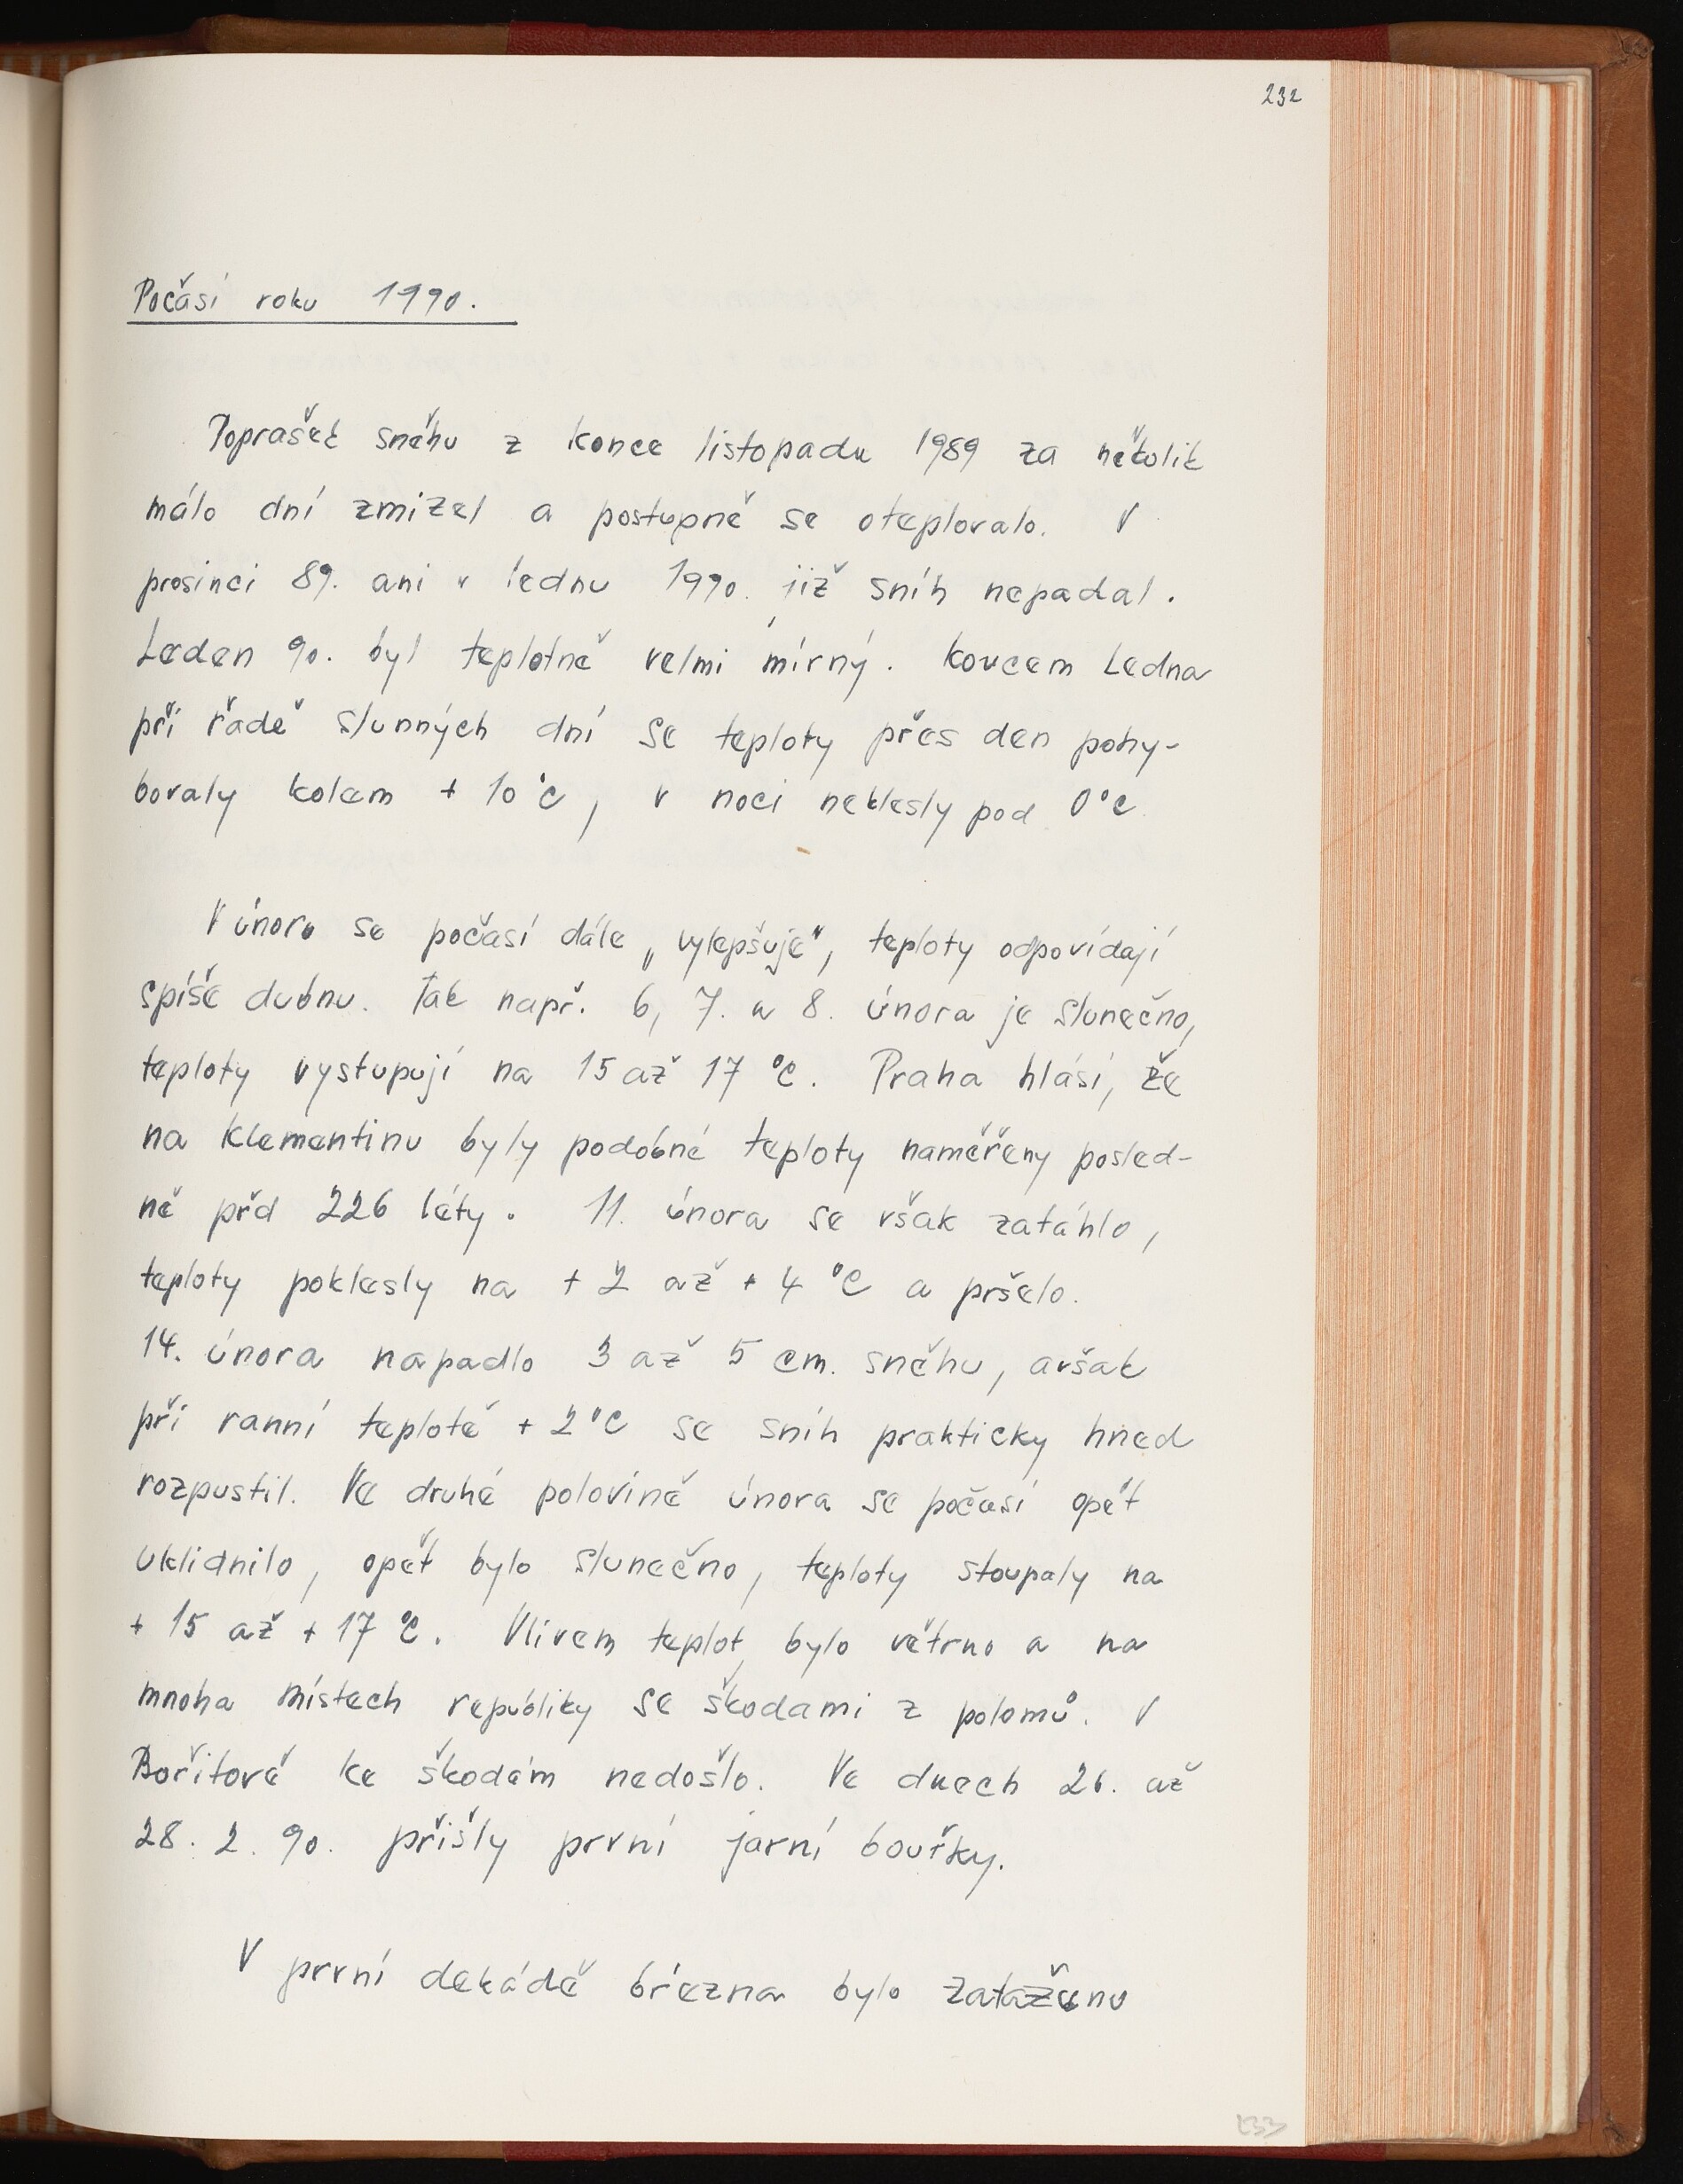 232
Počasí roku 1990.
Poprašek sněhu z konce listopadu 1989 za několik
málo dní zmizel a postupně se oteplovalo. V
prosinci 89. ani v lednu 1990. již sníh nepadal.
Leden 90. byl teplotně velmi mírný. Koncem Ledna
při řadě slunných dní se teploty přes den pohy-
bovaly kolem + 10°C, v noci neklesly pod 0°C
V únoru se počasí dále „vylepšuje", teploty odpovídají
spíše dubnu. Tak např. 6, 7. a 8. února je slunečno,
teploty vystupují na 15 až 17 °C. Praha hlásí, že
na Klementinu byly podobné teploty naměřeny posled-
ně přd 226 léty. 11. února se však zatáhlo,
teploty poklesly na + 2 až + 4 °C a pršelo.
14. února napadlo 3 až 5 cm. sněhu, avšak
při ranní teplotě + 2°C se sníh prakticky hned
rozpustil. Ve druhé polovině února se počasí opět
uklidnilo, opět bylo slunečno, teploty stoupaly na
+ 15 až + 17 °C. Vlivem teplot bylo větrno a na
mnoha místech republiky se škodami z polomů. V
Bořitově ke škodám nedošlo. Ve dnech 26. až
28. 2. 90. přišly první jarní bouřky.
V první dekádě března bylo zataženo
233